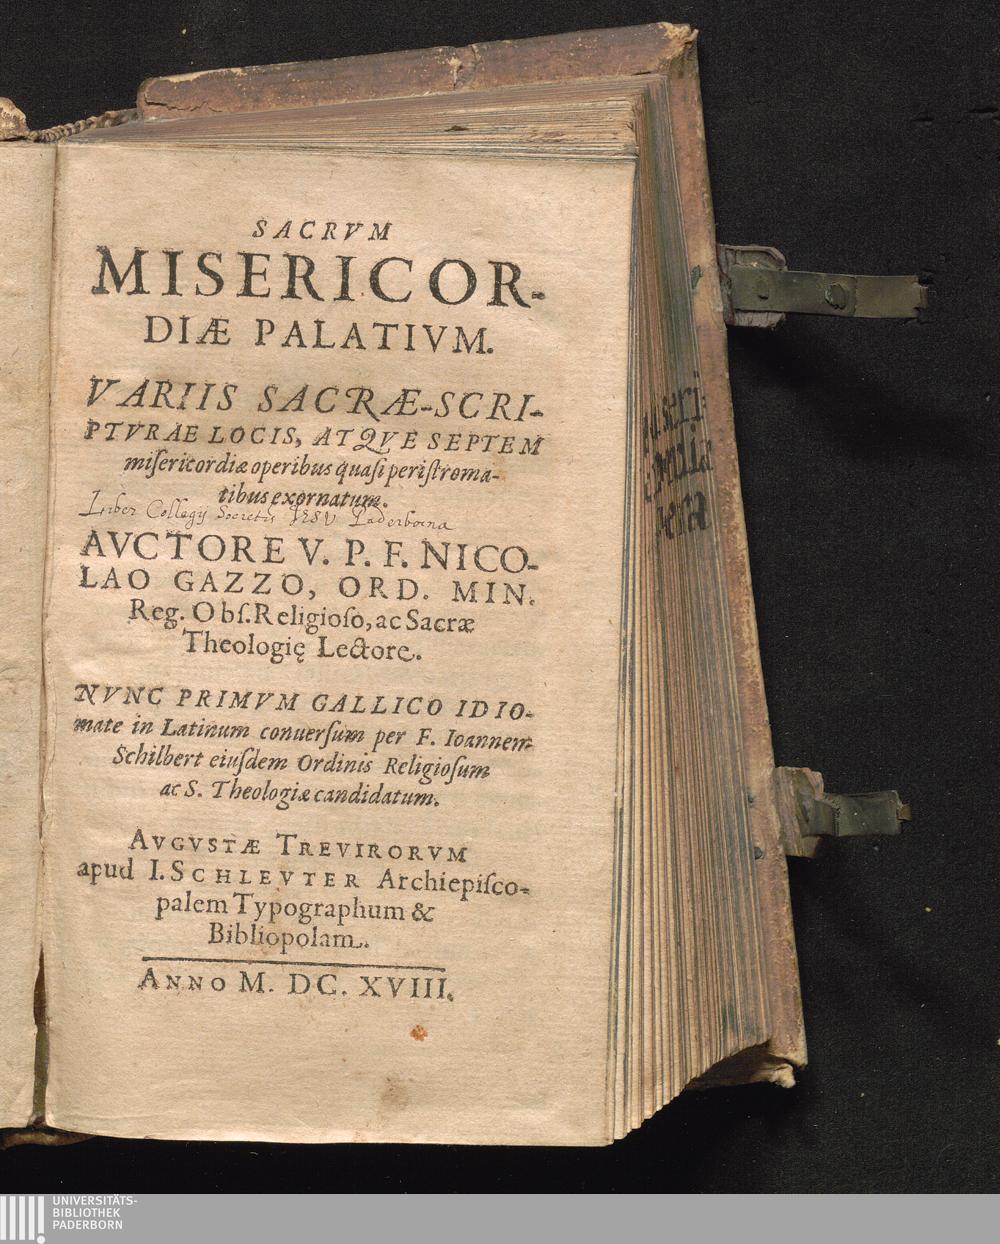 SACRVM
MISERICOR-
DIÆ PALATIVM.
VARIIS SACRÆ-SCRI-
PTVRAE LOCIS, ATQVE SEPTEM
miſericordiæ operibus quaſi periſtroma-
tibus exornatum.
Liber Collegij Societis IESV Paderbornæ
AVCTORE V. P. F. NICO-
LAO GAZZO, ORD. MIN.
Reg. Obſ. Religioſo, ac Sacræ
Theologię Lectore.
NVNC PRIMVM GALLICO IDIO-
mate in Latinum conuerſum per F. Ioannem
Schilbert eiuſdem Ordinis Religioſum
ac S. Theologiæ candidatum.
AVGVSTÆ TREVIRORVM
apud I. SCHLEVTER Archiepiſco-
palem Typographum &
Bibliopolam.
ANNO M. DC. XVIII.
UNIVERSITÄTS-
BIBLIOTHEK
PADERBORN